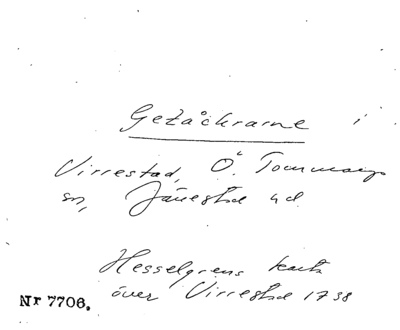 Getåckrarne i
Virrestad, Ö. Tommarps
sn, Järrestad hd.
Hesselgrens karta
över Virrestad 1738
Nr 7706.